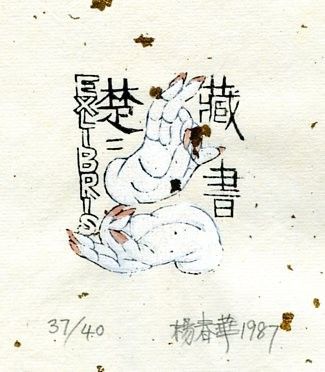 EXLIBRIS
楚二
藏書
37/40
楊春華1987